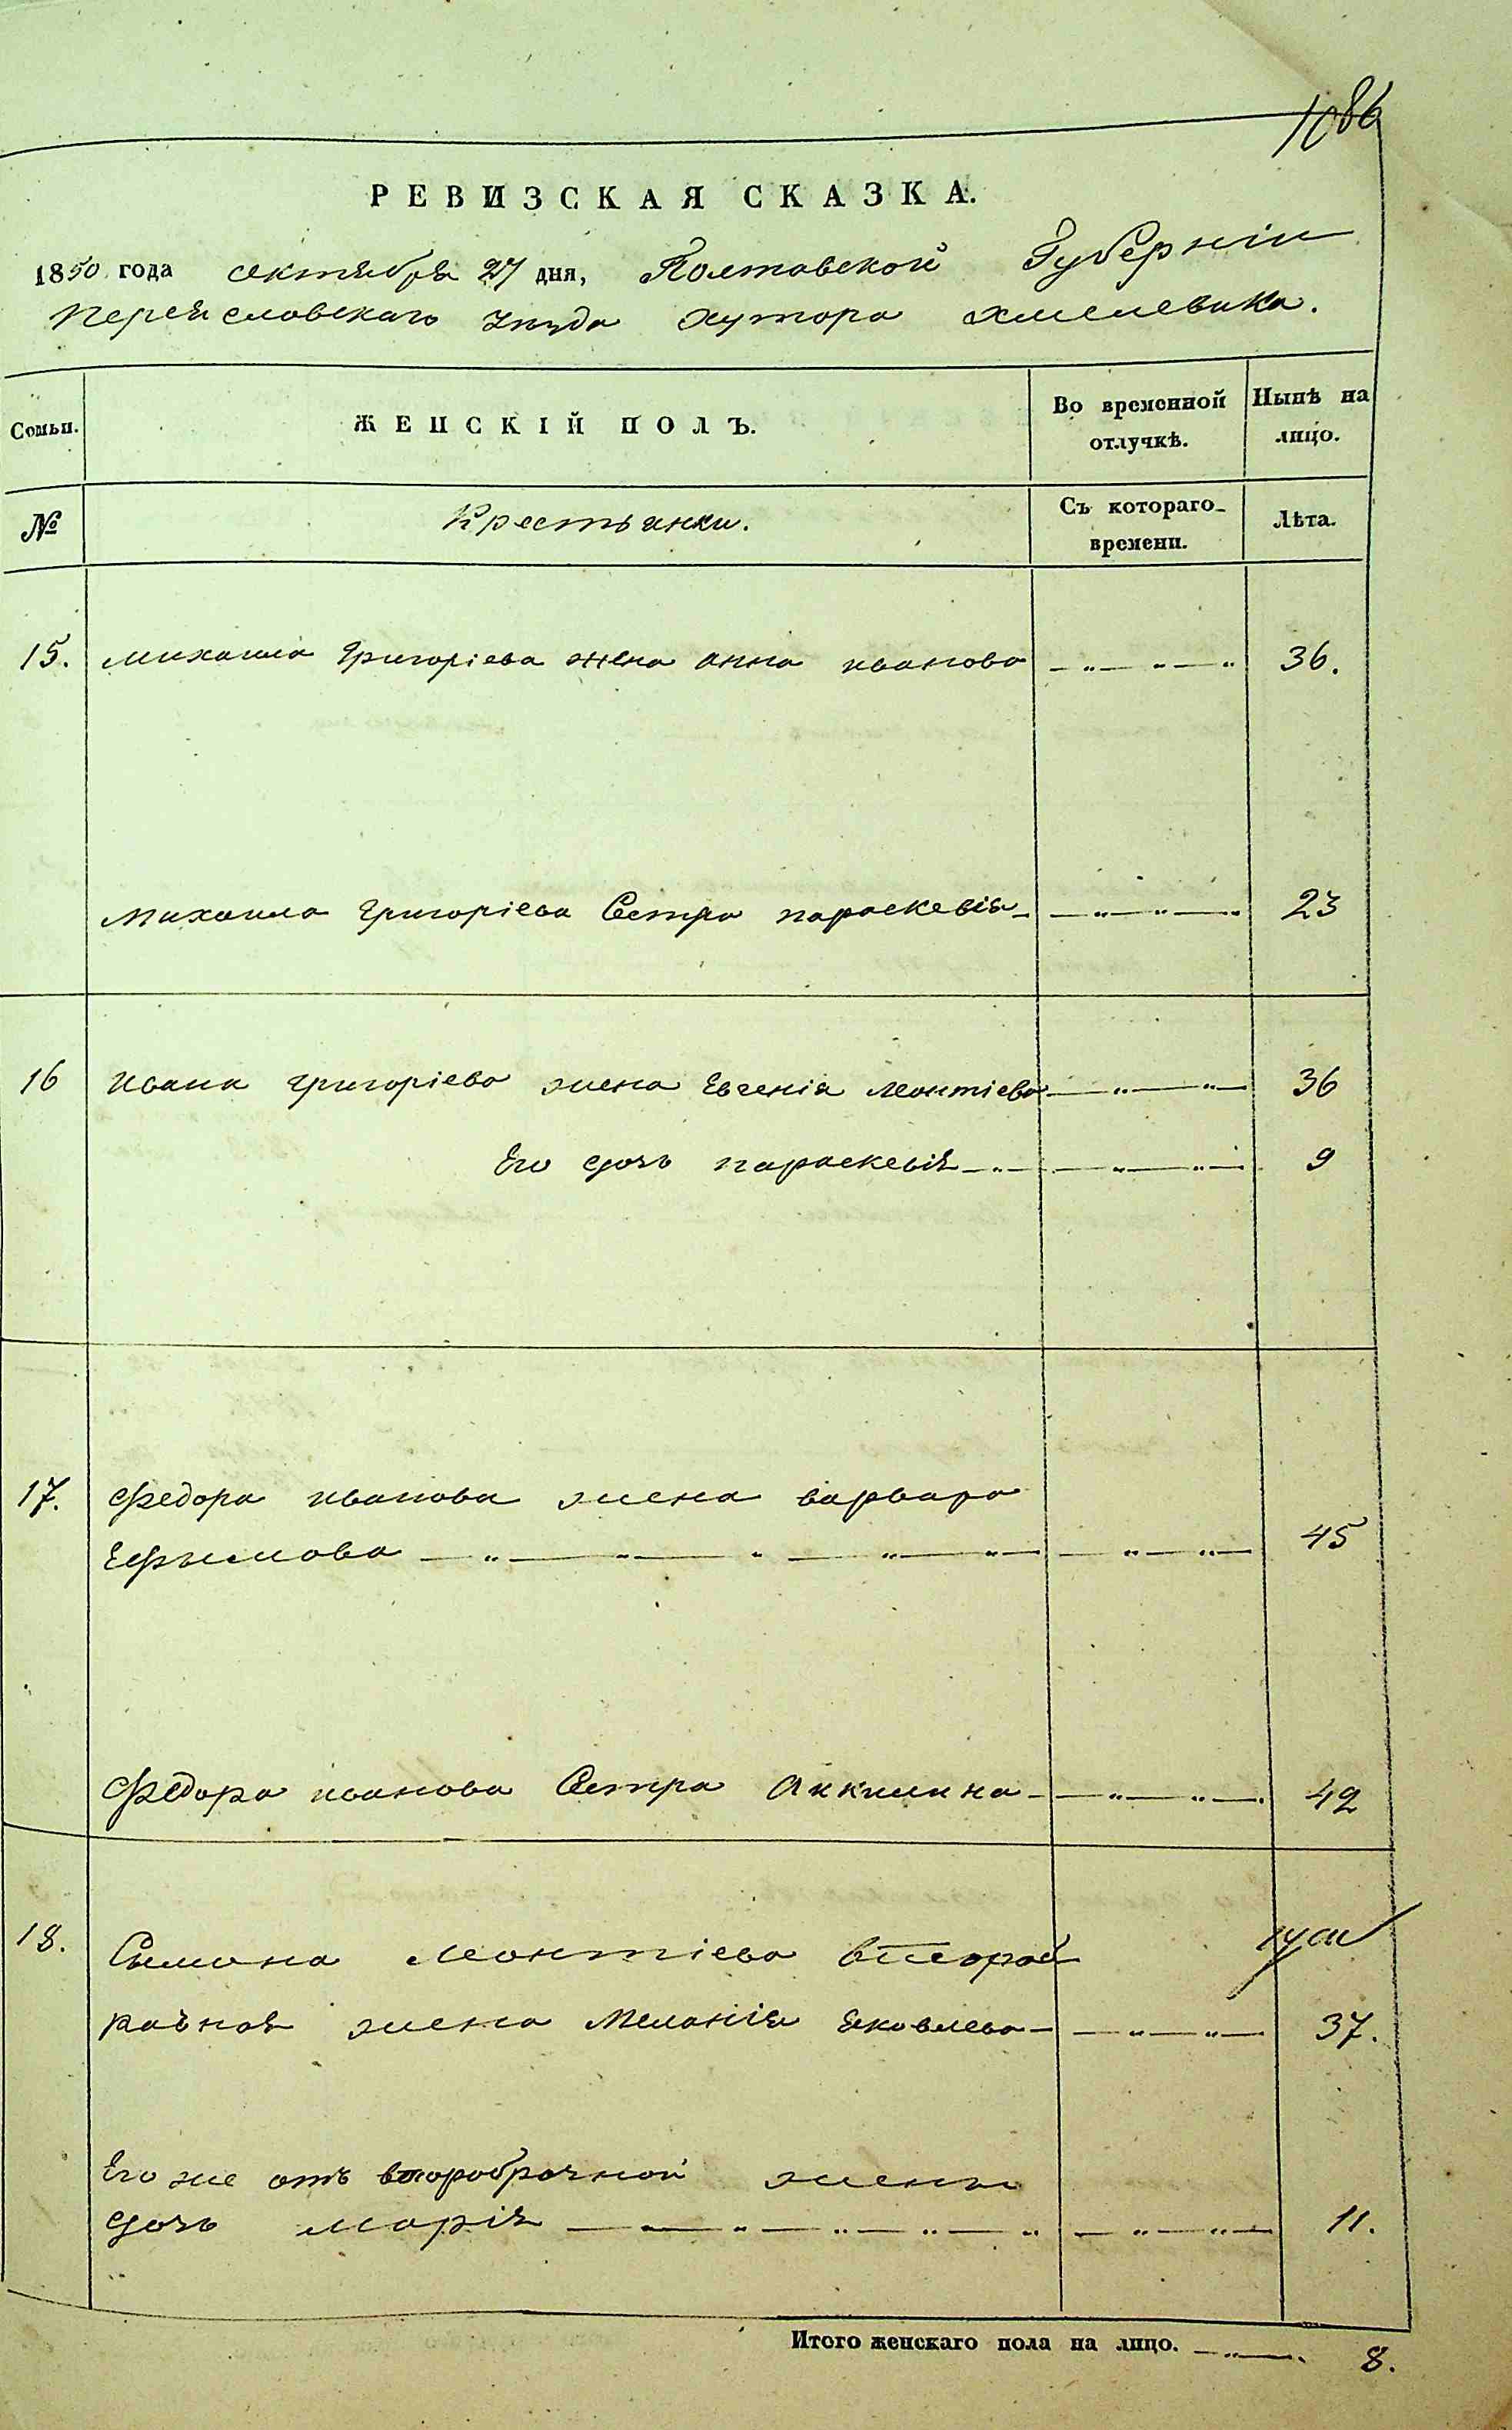 1086
РЕВИЗСКАЯ СКАЗКА.
1850 года октября 27 дня, Полтавской Губерніи
Переяславскаго уезда хутора Хмелевика.
Семьи. ЖЕНСКІЙ ПОЛЪ. Во временной отлучкѣ. Нынѣ на лицо.
№ Крестьянки. Съ котораго времени. Лѣта.
15. Михаила Григоріева жена Анна Иванова 36.
Михаила Григоріева Сестра Параскевія 23
16 Ивана Григоріева жена Евгенія Леонтіева 36
Его дочь Параскевія 9
17. Федора Иванова жена Варвара
Ефимова 45
Федора Иванова Сестра Аккилина 42
18. Симона Леонтіева второб
рачная жена Меланія Яковлева 37.
Его же отъ второбрачной жены
дочь Марія 11.
Итого женскаго пола на лицо. 8.